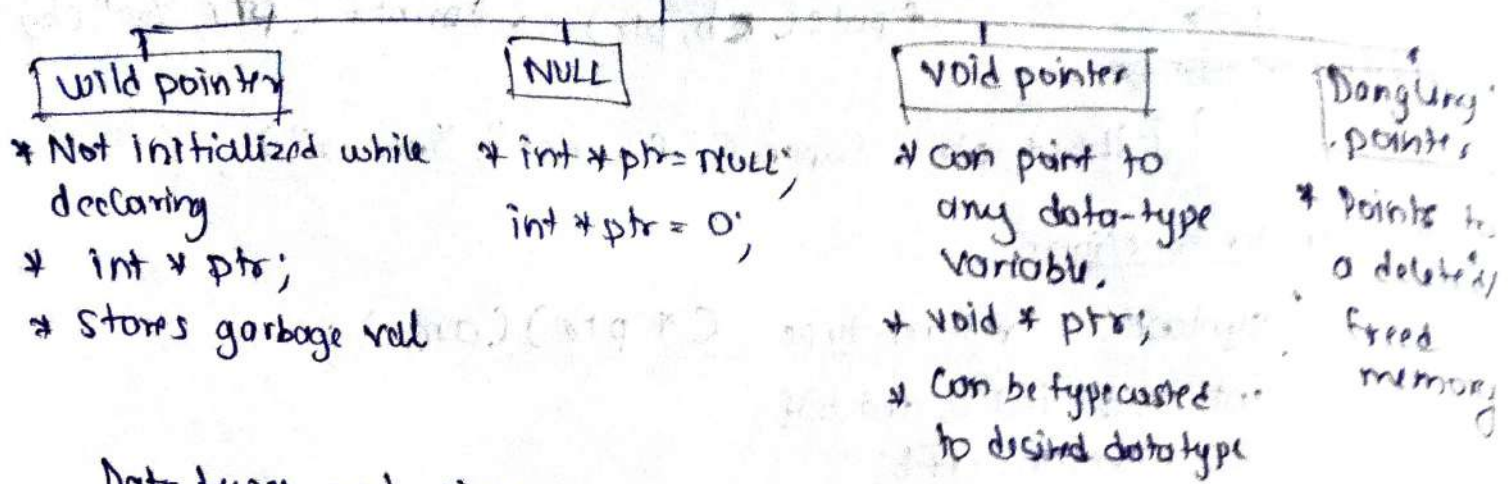 Wild pointer
* Not initialized while
declaring
* int * ptr;
* Stores garbage val
NULL
* int * ptr = NULL;
int * ptr = 0;
Void pointer
* Can point to
any data-type
variable.
* void * ptr;
* Can be typecasted
to desired datatype
Dangling
pointer
* Points to
a deleted/
freed
memory